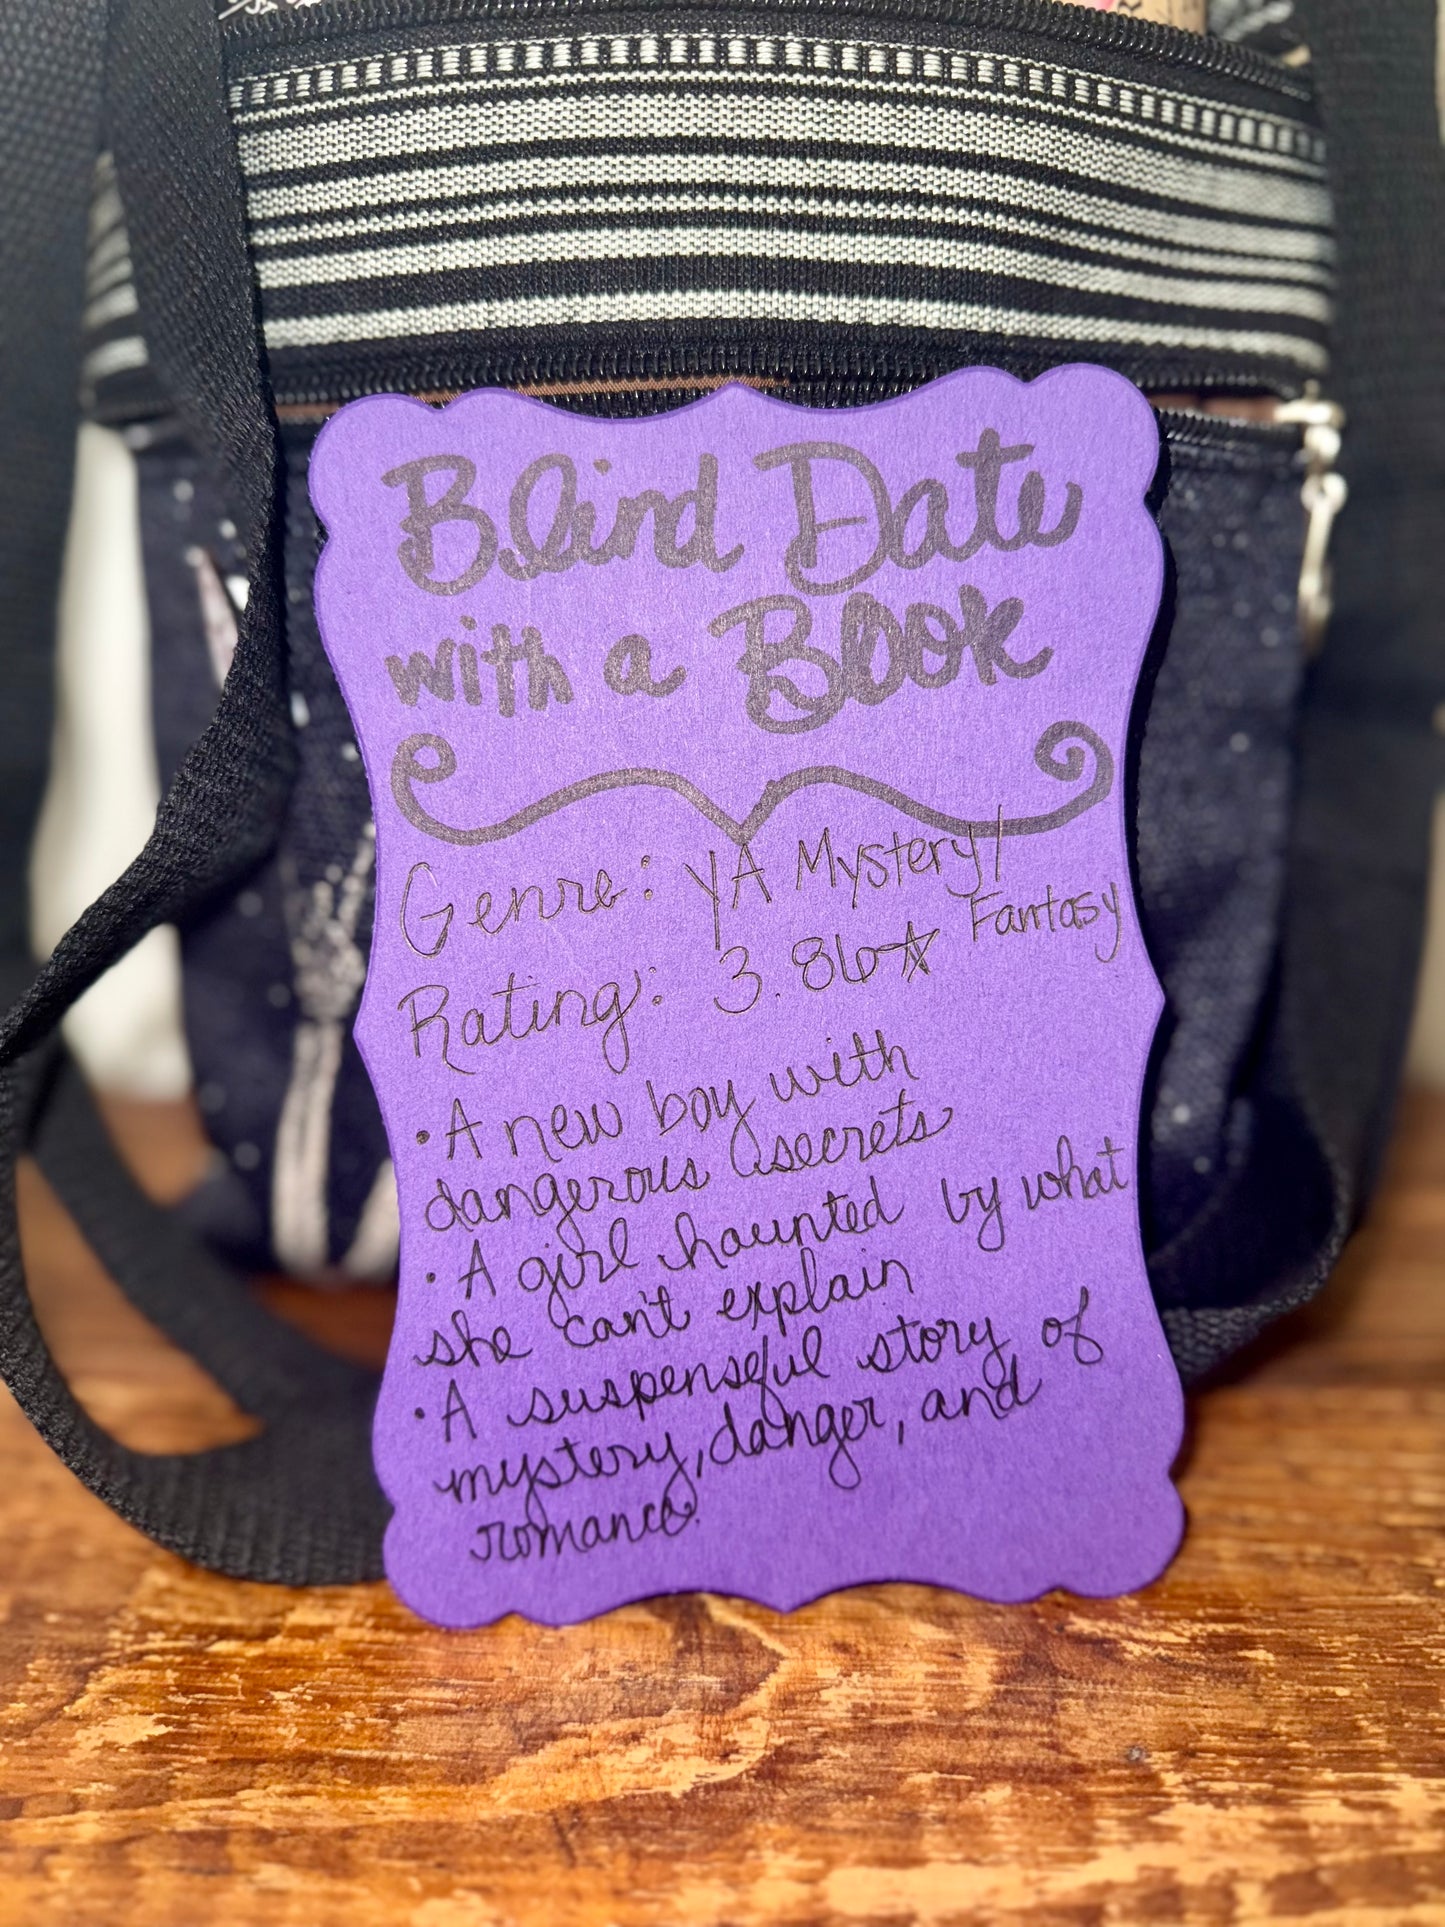 Blind Date
with a Book
Genre: YA Mystery/
Fantasy
Rating: 3.86☆
• A new boy with
dangerous secrets
• A girl haunted by what
she can't explain
• A suspenseful story of
mystery, danger, and
romance.